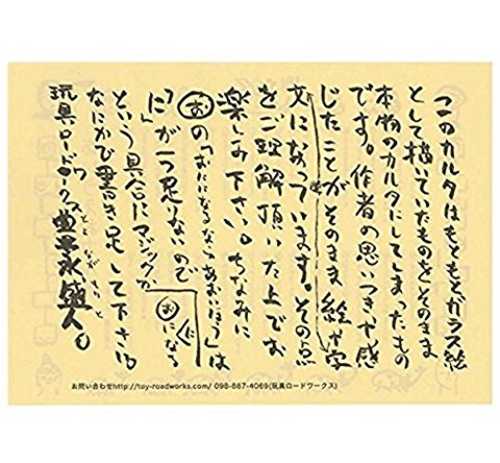 このカルタはもともとガラス絵
として描いていたものをそのまま
本物のカルタにしてしまったもの
です。作者の思いつきや感
じたことがそのまま絵や字
文になっています。その点
をご理解頂いた上でお
楽しみ下さい。ちなみに
おの「おにになるならあおいほう」は
「に」が一つ足りないので
おにになる
という具合にマジックか
なにかで書き足して下さい。
玩具ロードワークス 豊永盛人
とよ なが もり と
お問い合わせhttp://toy-roadworks.com/ 098-887-4069(玩具ロードワークス)